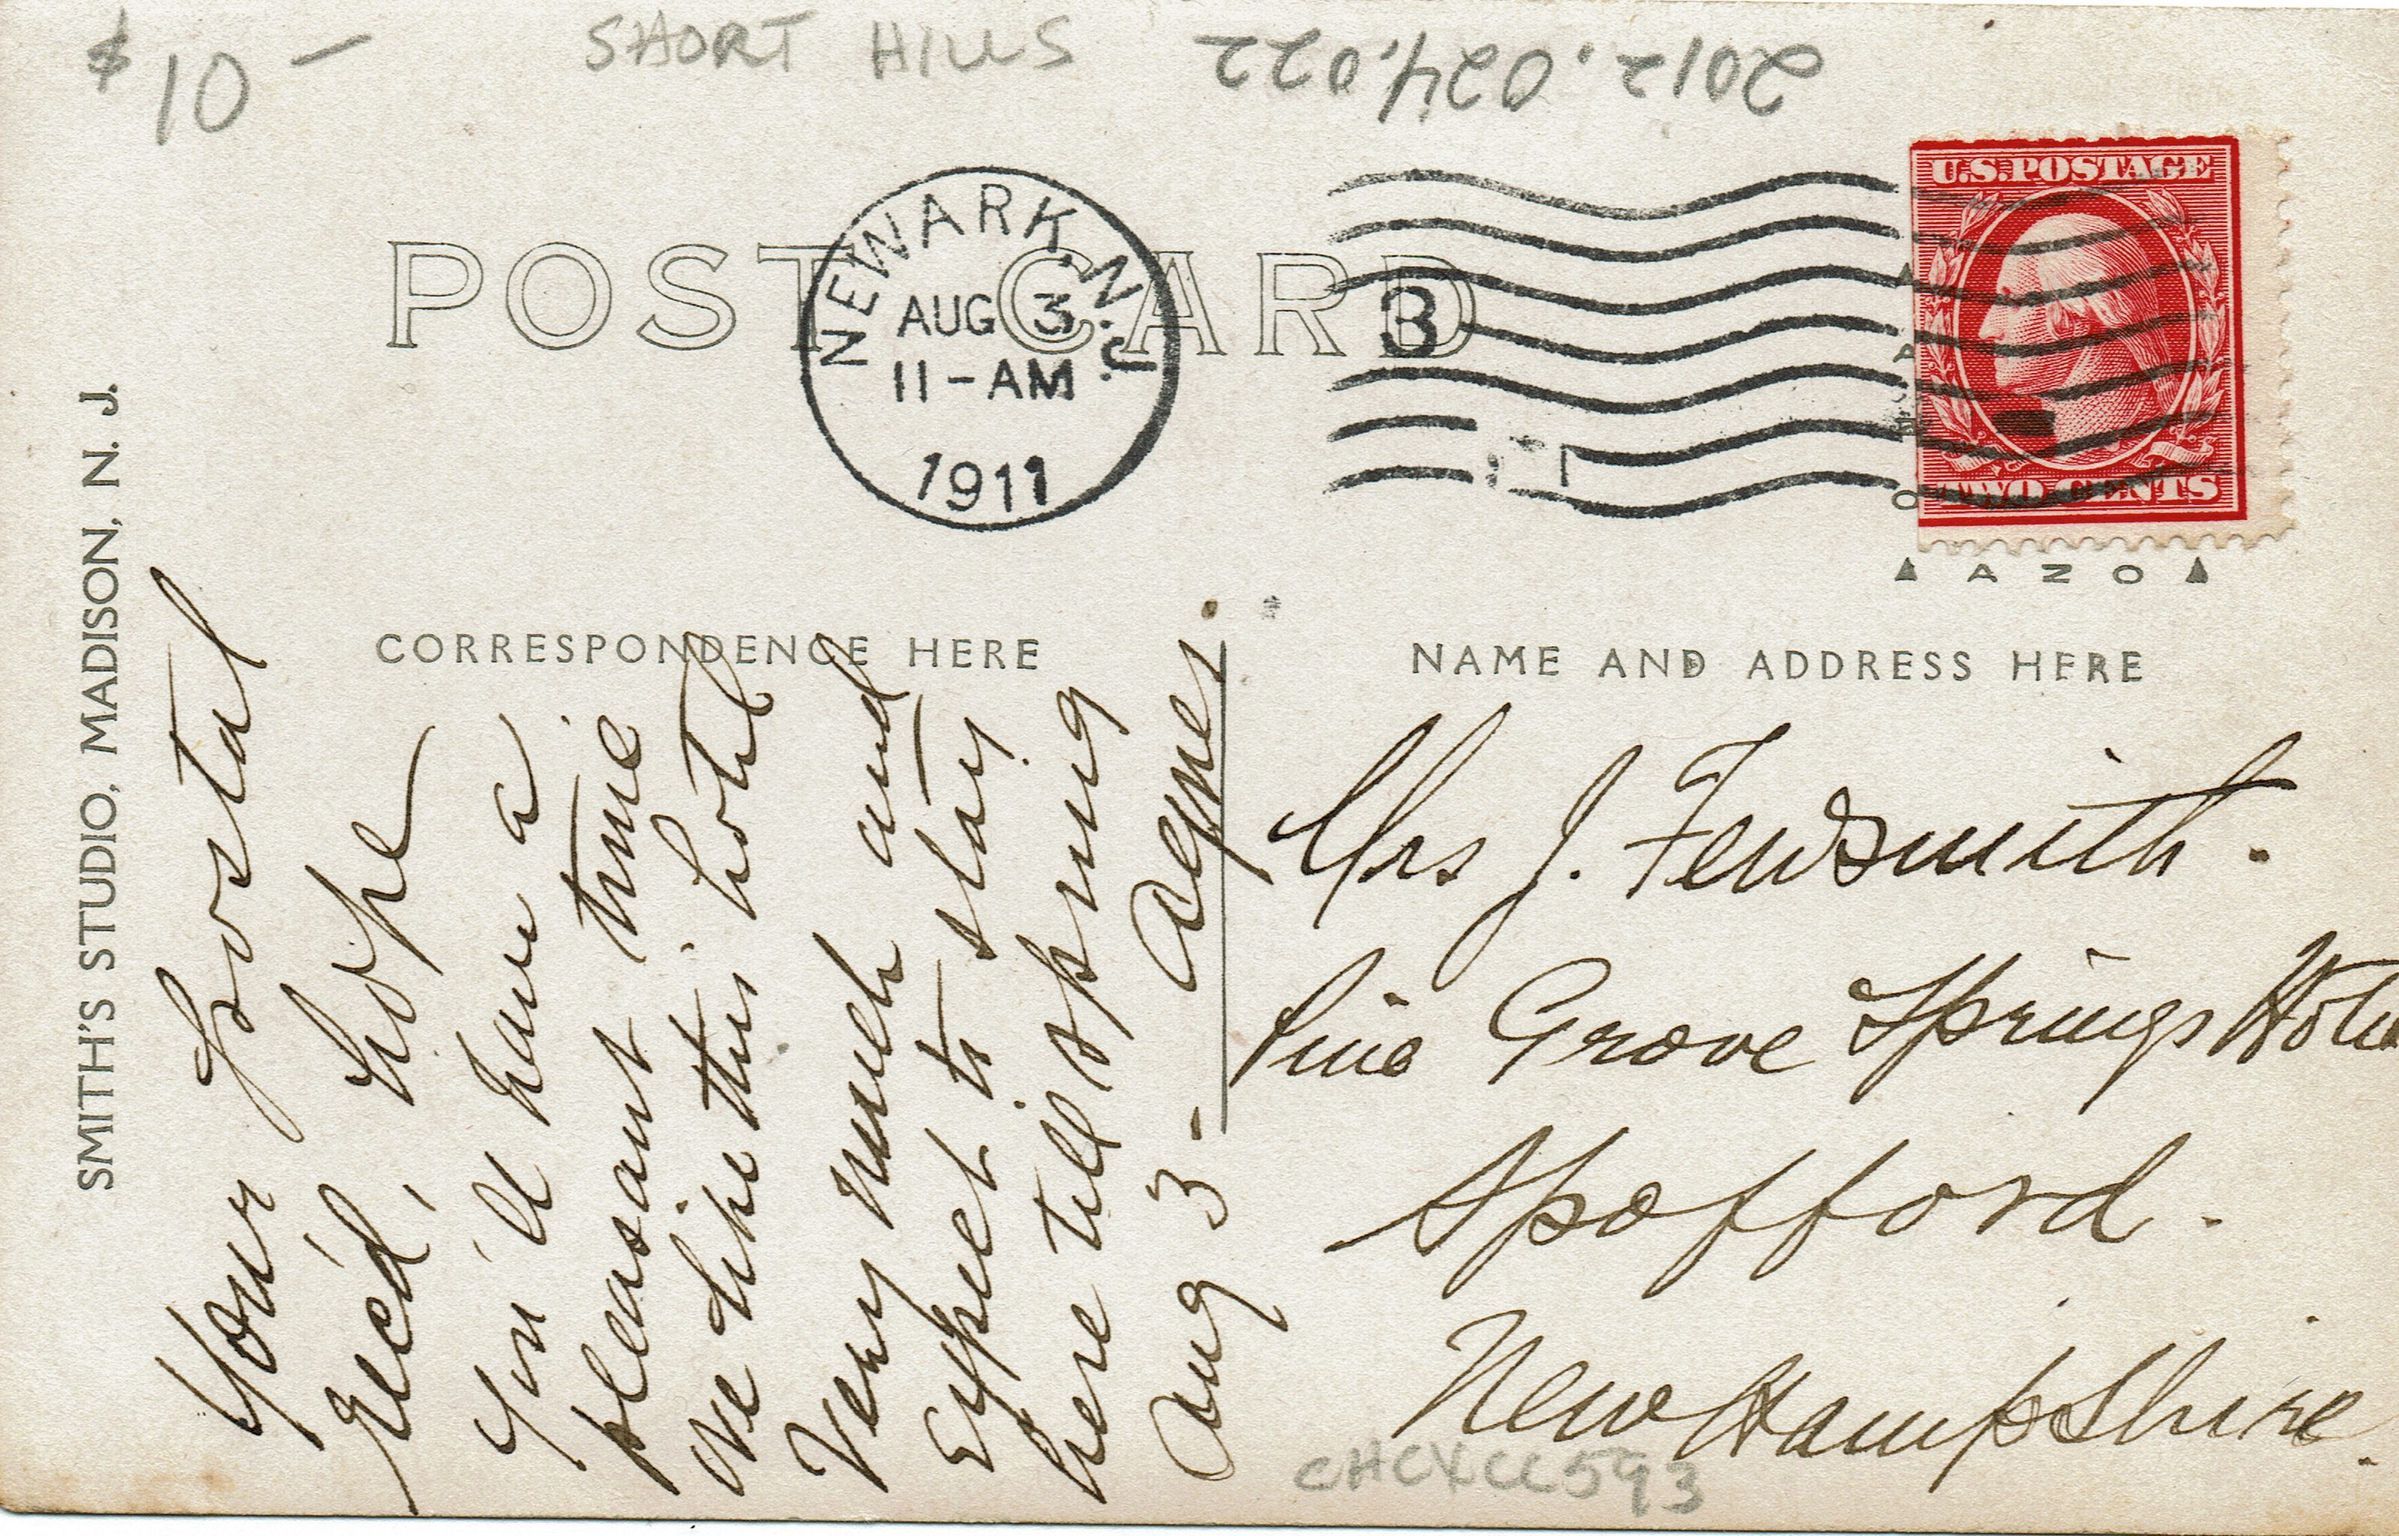 $10 –
SHORT HILLS
2012.024.022
U.S. POSTAGE
TWO CENTS
NEWARK, N. J.
AUG 3
11-AM
1911
3
POST CARD
AZO
SMITH'S STUDIO, MADISON, N. J.
CORRESPONDENCE HERE
NAME AND ADDRESS HERE
Your postal
rec'd, hope
you'll have a
pleasant time
We like this hotel
very much and
expect to stay
here till spring
Aug 3- Agnes.
Mrs J. Fewsmith.
Pine Grove Springs Hotel
Spofford.
New Hampshire.